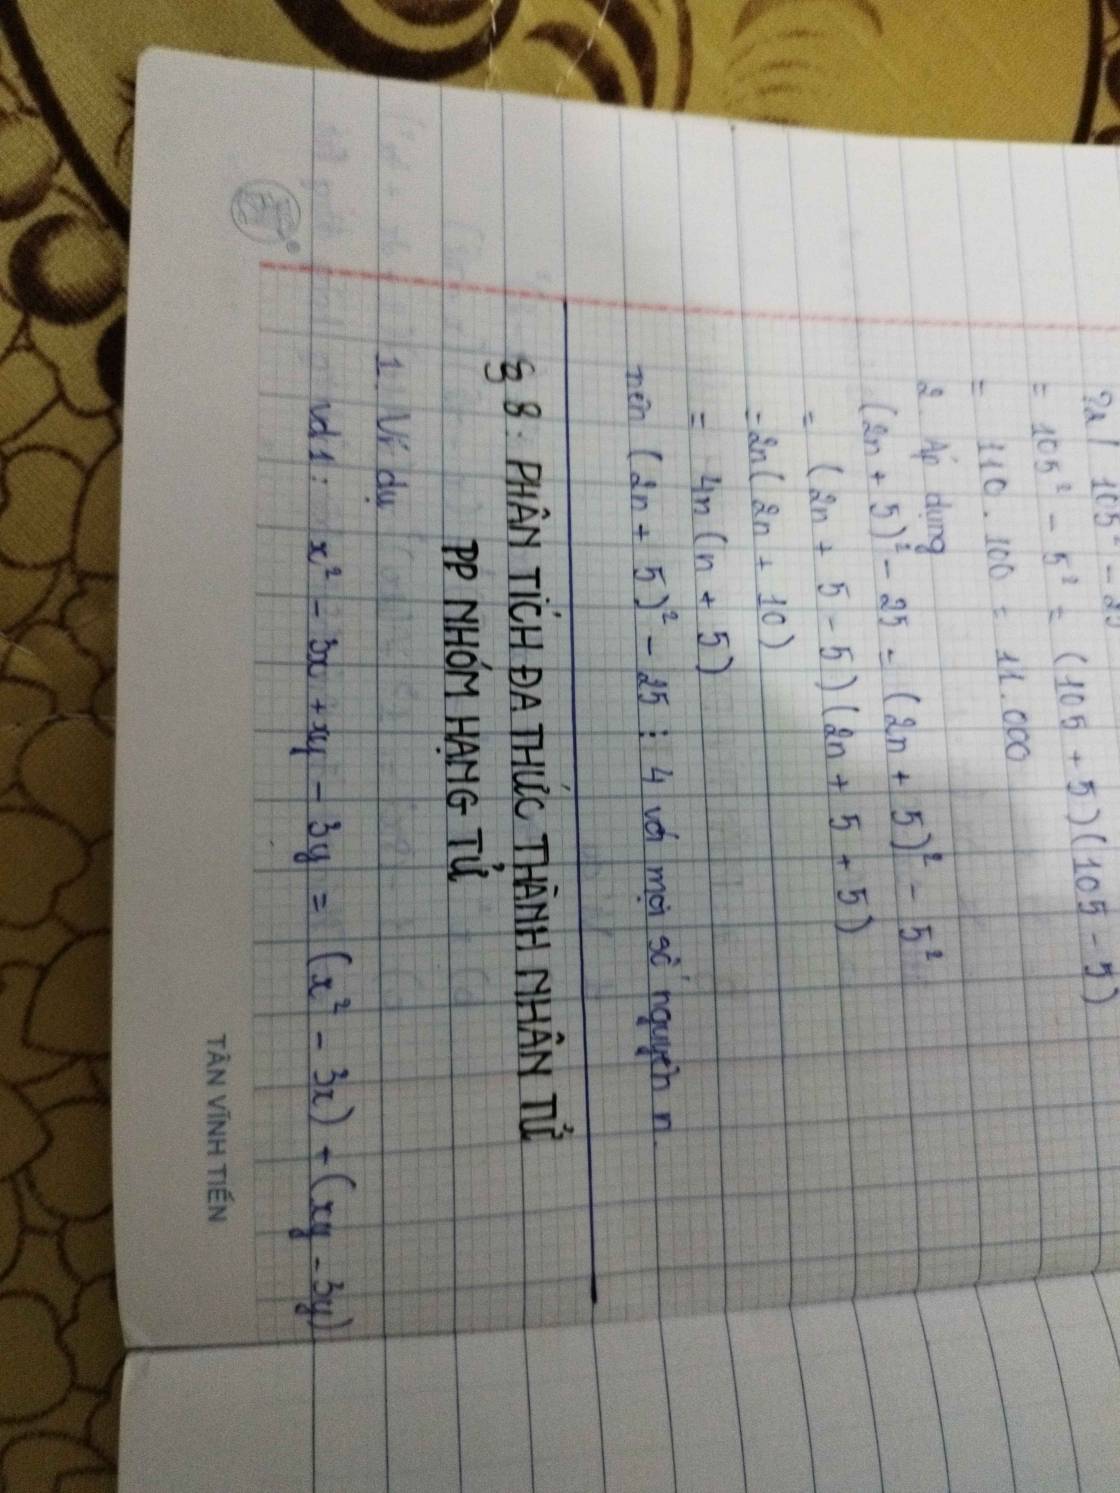 ?2/ 105² - 25
= 105² - 5² = (105 + 5)(105 - 5)
= 110.100 = 11.000
2 Áp dụng
(2n + 5)² - 25 = (2n + 5)² - 5²
= (2n + 5 - 5)(2n + 5 + 5)
= 2n(2n + 10)
= 4n(n + 5)
nên (2n + 5)² - 25 ⋮ 4 với mọi số nguyên n.
§ 8: PHÂN TÍCH ĐA THỨC THÀNH NHÂN TỬ
PP NHÓM HẠNG TỬ
1. Ví dụ
vd1: x² - 3x + xy - 3y = (x² - 3x) + (xy - 3y)
TÂN VĨNH TIẾN